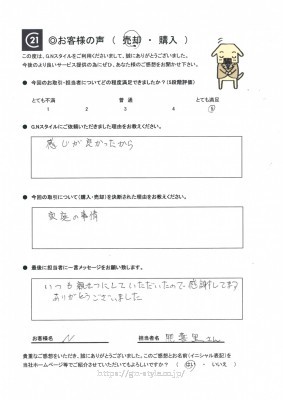 21
◎お客様の声（ 売却 ・ 購入 ）
この度は、G.Nスタイルをご利用くださいまして、誠にありがとうございました。
今後のより良いサービス提供の為にぜひ、あなた様のご感想をお聞かせ下さい。
● 今回のお取引・担当者についてどの程度満足できましたか？(5段階評価)
とても不満 普通 とても満足
1 2 3 4 5
● G.Nスタイルにご依頼いただきました理由をお教えください。
感じが良かったから
● 今回の取引について(購入・売却)を決断された理由をお教えください。
家庭の事情
● 最後に担当者に一言メッセージをお願い致します。
いつも親切にしていただいたので、感謝してます
ありがとうございました
お客様名 N 担当者名 さん
貴重なご感想をいただき、誠にありがとうございました。このご感想とお名前(イニシャル表記)を
当社ホームページ等でご紹介させていただいてもよろしいですか？ （ はい ・ いいえ ）
https://gn-style.co.jp